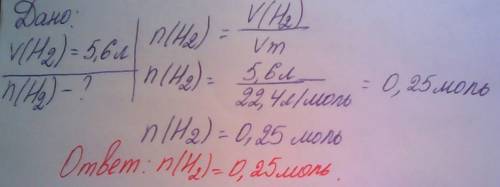 Дано:
V(H₂) = 5,6 л
n(H₂) - ?
n(H₂) = V(H₂) / Vm
n(H₂) = 5,6 л / 22,4 л/моль = 0,25 моль
n(H₂) = 0,25 моль
Ответ: n(H₂) = 0,25 моль.